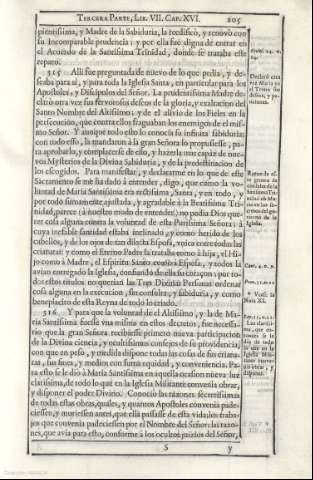 TERCERA PARTE, LIB. VII. CAP. XVI. 205
pientissima, y Madre de la Sabiduria, la reedificò, y renovò con
su incomparable prudencia: y por ella fue digna de entrar en
el Acuerdo de la Santissima Trinidad, donde se trataba este
reparo.
315 Alli fue preguntada de nuevo de lo que pedia, y de-
seaba para sì, y para toda la Iglesia Santa, en particular para los
Apostoles, y Discipulos del Señor. La prudentissima Madre de-
clarò otra vez sus fervorosos deseos de la gloria, y exaltacion del
Santo Nombre del Altissimo; y de el alivio de los Fieles en la
persecucion, que contra ellos fraguaban los enemigos de el mis-
mo Señor. Y aunque todo esto lo conocia su infinita sabiduria;
con todo esso, la mandaron à la gran Señora lo propusiesse, pa-
ra aprobarlo, y complacerse de ello, y hazerla mas capàz de nue-
vos Mysterios de la Divina Sabiduria, y de la predestinacion de
los escogidos. Para manifestar, y declararme en lo que de este
Sacramento se me ha dado à entender, digo, que como la vo-
luntad de Maria Santissima era rectissima, Santa, y en todo, y
por todo sumamente ajustada, y agradable à la Beatissima Tri-
nidad, parece (à nuestro modo de entender) no podia Dios que-
rer cosa alguna contra la voluntad de esta Purissima Señora: à
cuya inefable santidad estaba inclinado, y como herido de los
cabellos, y de los ojos de tan dilecta Esposa, vnica entre todas las
criaturas: y como el Eterno Padre la trataba como à hija, el Hi-
jo como à Madre, el Espiritu Santo como à Esposa, y todos la
avian entregado la Iglesia, confiando de ella su coraçon; por to-
dos estos titulos no querian las Tres Divinas Personas ordenar
cosa alguna en la execucion, sin consulta, y sabiduria, y como
beneplacito de esta Reyna de todo lo criado.
316 Y para que la voluntad de el Altissimo, y la de Ma-
ria Santissima fuesse vna misma en estos decretos, fue necessa-
rio que la gran Señora recibiesse primero nueva participacion
de la Divina ciencia, y ocultissimos consejos de su providencia,
con que en peso, y medida dispone todas las cosas de sus criatu-
ras, sus fines, y medios con suma equidad, y conveniencia. Pa-
ra esto se le diò à Maria Santissima en aquella ocasion nueva luz
clarissima, de todo lo que en la Iglesia Militante convenia obrar,
y disponer el poder Divino. Conociò las razones secretissimas
de todas estas obras, quales, y quantos Apostoles convenia pade-
ciessen, y muriessen antes, que ella passasse de esta vida; los traba-
jos que convenia padeciessen por el Nombre del Señor: las razo-
nes, que avia para esto, conforme à los ocultos juizios del Señor,
S y